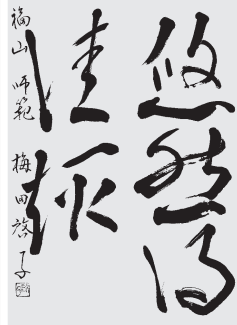 悠然得
佳趣
福山師範 梅田啓子